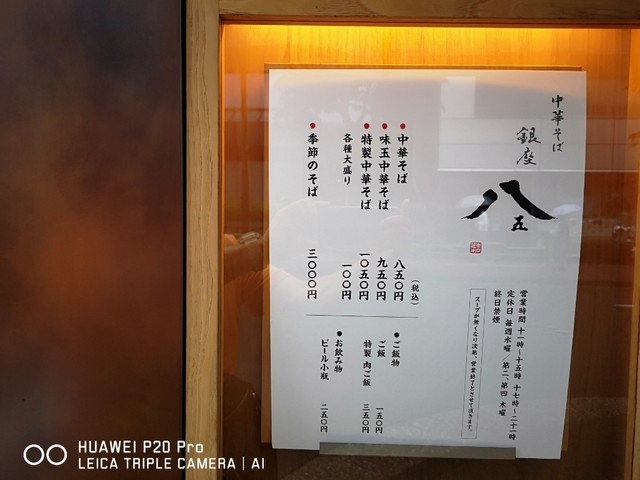 中華そば
銀座
八五
営業時間 十一時～十五時 十七時～二十一時
定休日 毎週水曜／第二、第四 木曜
終日禁煙
スープが無くなり次第、営業終了とさせて頂きます。
(税込)
中華そば 八五〇円
味玉中華そば 九五〇円
特製中華そば 一〇五〇円
各種大盛り 一〇〇円
季節のそば 三〇〇〇円
ご飯物
ご飯 一五〇円
特製 肉ご飯 三五〇円
お飲み物
ビール小瓶 二五〇円
HUAWEI P20 Pro
LEICA TRIPLE CAMERA | AI